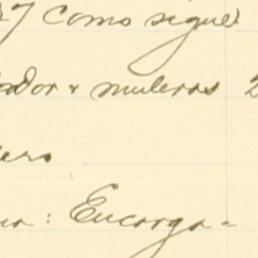 27 como sigue
ador & muleros 2
ero
na: Encarga=